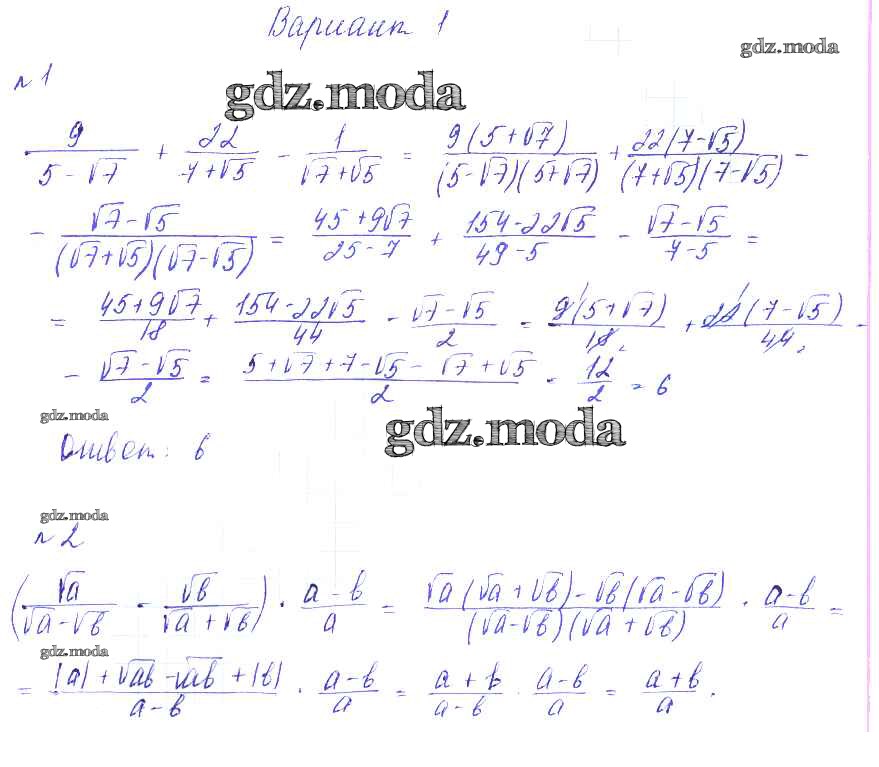 Вариант 1
gdz.moda
№ 1
gdz.moda
9/(5-√7) + 22/(7+√5) - 1/(√7+√5) = 9(5+√7)/((5-√7)(5+√7)) + 22(7-√5)/((7+√5)(7-√5)) -
- (√7-√5)/((√7+√5)(√7-√5)) = (45+9√7)/(25-7) + (154-22√5)/(49-5) - (√7-√5)/(7-5) =
= (45+9√7)/18 + (154-22√5)/44 - (√7-√5)/2 = 9(5+√7)/18 + 22(7-√5)/44 -
- (√7-√5)/2 = (5+√7+7-√5-√7+√5)/2 = 12/2 = 6
gdz.moda
gdz.moda
Ответ: 6
gdz.moda
№ 2
(√a/(√a-√b) - √b/(√a+√b)) · (a-b)/a = (√a(√a+√b)-√b(√a-√b))/((√a-√b)(√a+√b)) · (a-b)/a =
gdz.moda
= (|a|+√ab-√ab+|b|)/(a-b) · (a-b)/a = (a+b)/(a-b) · (a-b)/a = (a+b)/a.